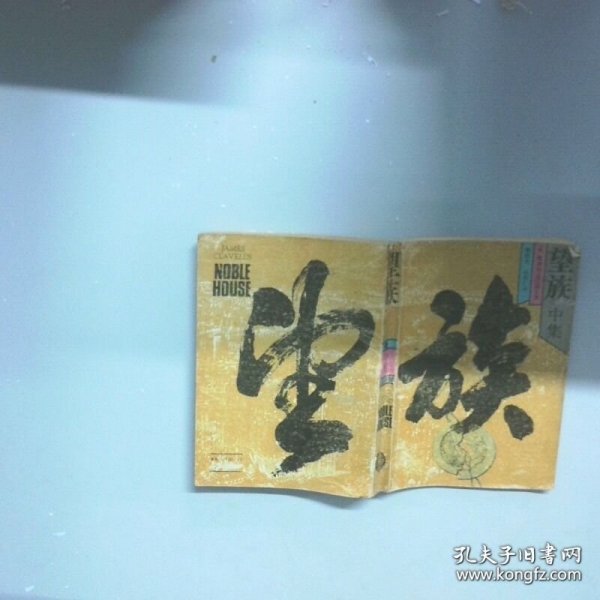 JAMES
CLAVELL'S
NOBLE
HOUSE
望
望族
NOBLE
HOUSE
族
望族
中集
孔夫子旧书网
www.kongfz.com